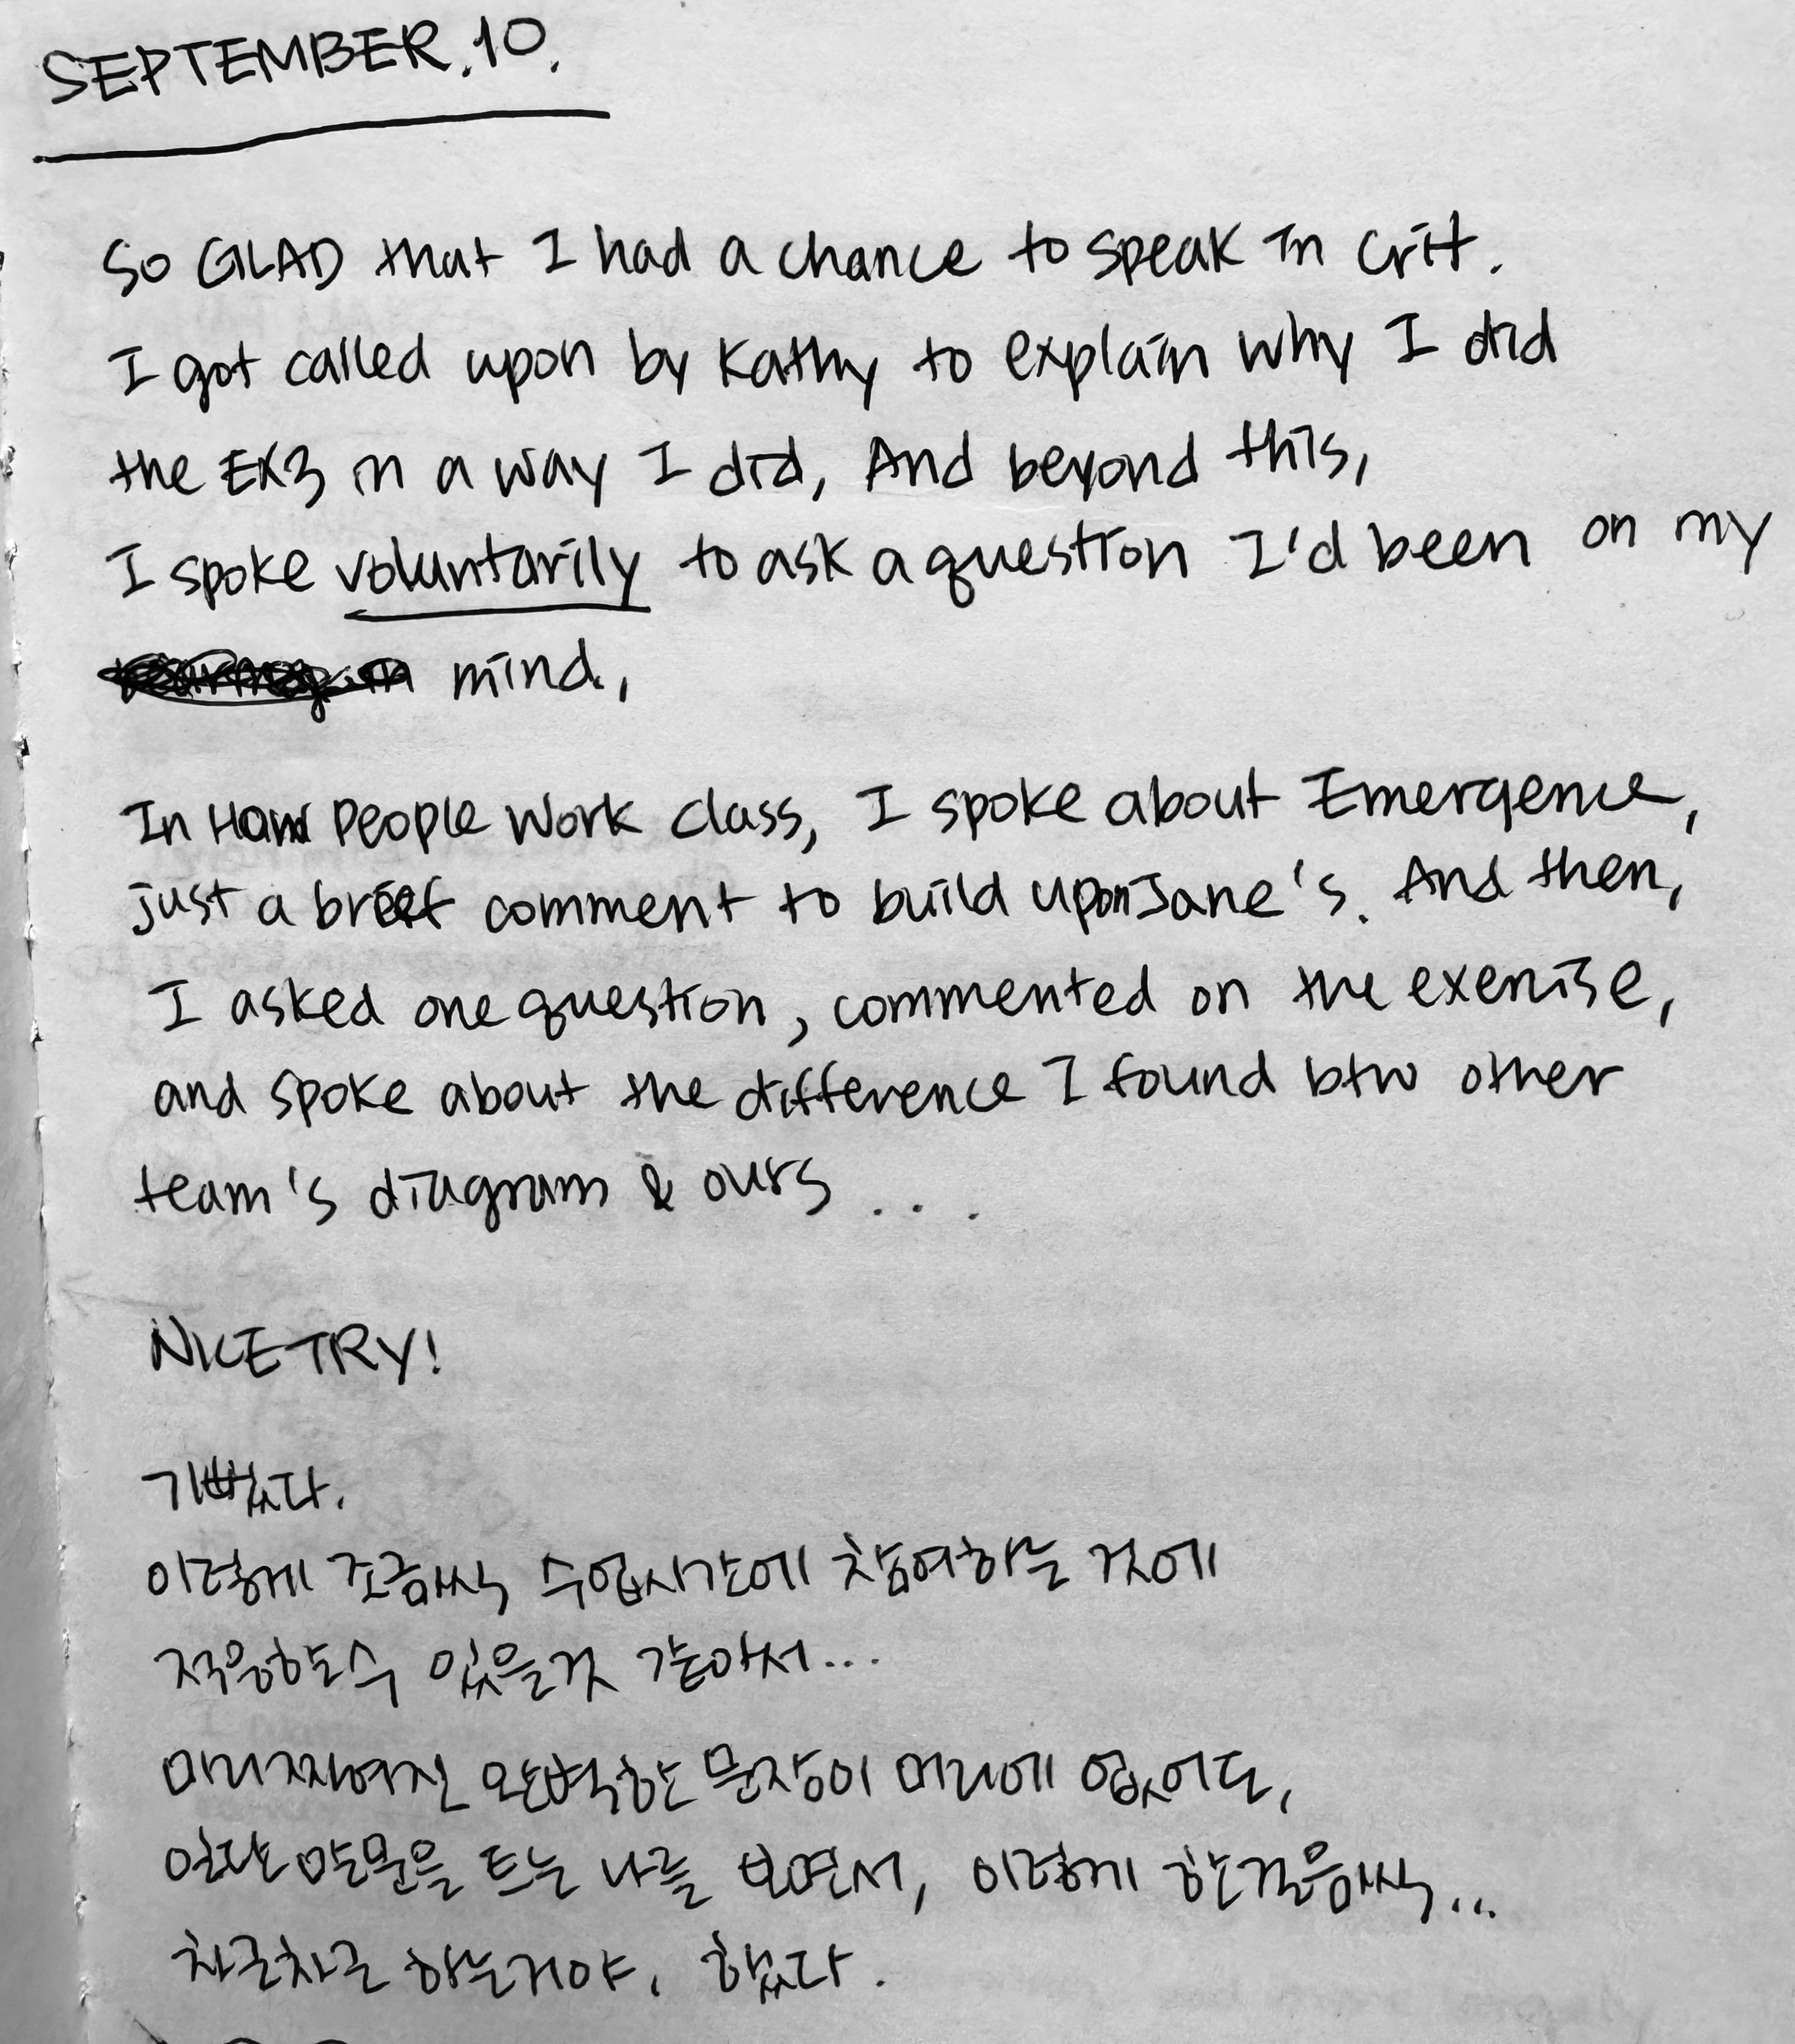 SEPTEMBER.10.
So GLAD that I had a chance to speak in crit.
I got called upon by Kathy to explain why I did
the EX3 in a way I did, And beyond this,
I spoke voluntarily to ask a question I'd been on my
mind.,
In How People Work class, I spoke about Emergence,
just a brief comment to build upon Jane's. And then,
I asked one question, commented on the exercise,
and spoke about the difference I found btw other
team's diagram & ours ...
NICE TRY!
기뻤다.
이렇게 조금씩 수업시간에 참여하는 것에
적응할 수 있을것 같아서...
미리 짜여진 완벽한 문장이 머리에 없어도,
일단 말문을 트는 나를 보면서, 이렇게 한걸음씩...
차근차근 하는거야, 했다.